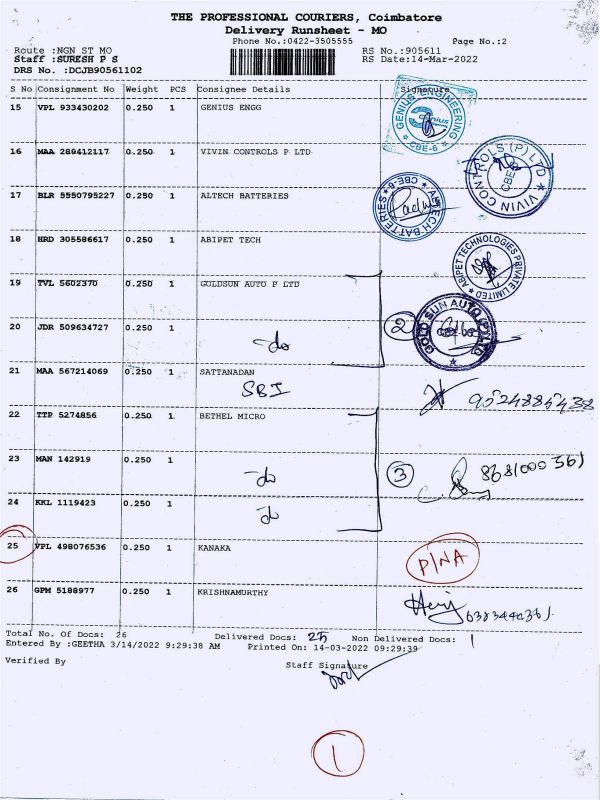 THE PROFESSIONAL COURIERS, Coimbatore
Delivery Runsheet - MO
Phone No.:0422-3505555 Page No.:2
Route :NGN ST MO RS No.:905611
Staff :SURESH P S RS Date:14-Mar-2022
DRS No. :DCJB90561102
S No Consignment No Weight PCS Consignee Details Signature
15 VPL 933430202 0.250 1 GENIUS ENGG
GENIUS ENGINEERING Genius CBE-6
16 MAA 289412117 0.250 1 VIVIN CONTROLS P LTD
VIVIN CONTROLS (P) LTD CBE
17 BLR 5550795227 0.250 1 ALTECH BATTERIES
ALTECH BATTERIES CBE-6
18 HRD 305586617 0.250 1 ABIPET TECH
ABIPET TECHNOLOGIES PRIVATE LIMITED
19 TVL 5602370 0.250 1 GOLDSUN AUTO P LTD
GOLD SUN AUTO (P) LTD
20 JDR 509634727 0.250 1 -do 2
21 MAA 567214069 0.250 1 SATTANADAN
SBI
22 TTP 5274856 0.250 1 BETHEL MICRO
23 MAN 142919 0.250 1 -do 3
24 KKL 1119423 0.250 1 -do
25 VPL 498076536 0.250 1 KANAKA P/NA
26 GPM 5188977 0.250 1 KRISHNAMURTHY
Total No. Of Docs: 26 Delivered Docs: 25 Non Delivered Docs: 1
Entered By :GEETHA 3/14/2022 9:29:38 AM Printed On: 14-03-2022 09:29:39
Verified By Staff Signature
1